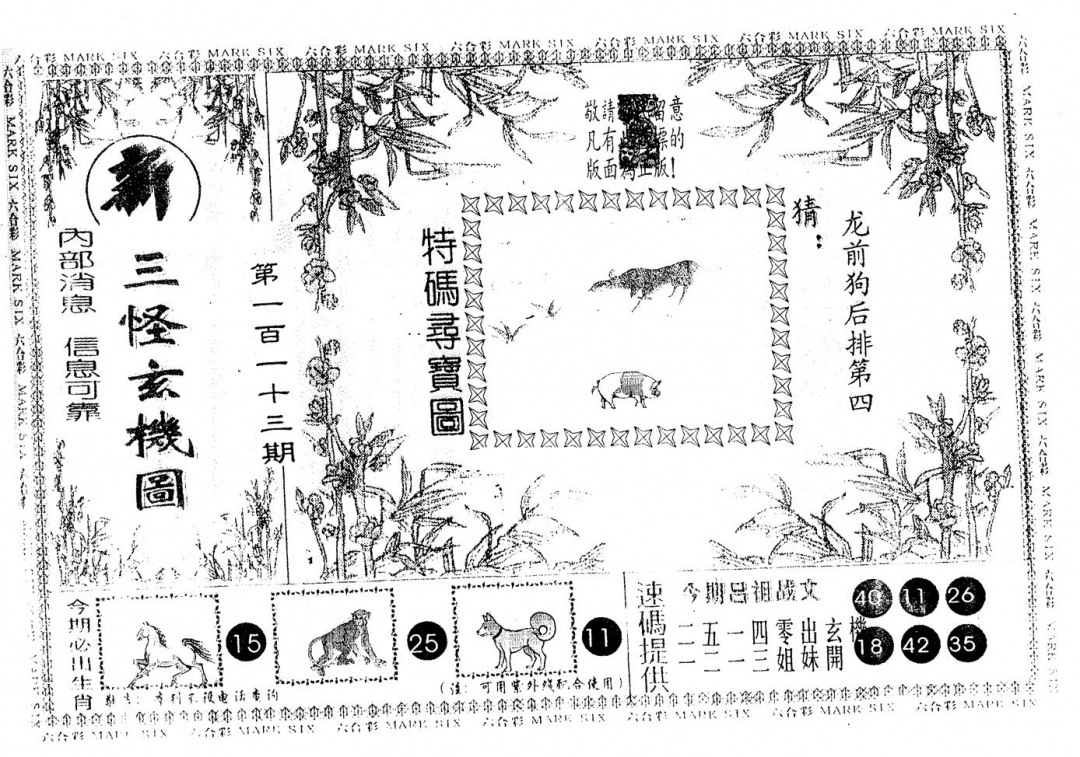 六合彩 MARK SIX 六合彩 MARK SIX 六合彩 MARK SIX 六合彩 MARK SIX 六合彩 MARK SIX 六合彩 MARK SIX 六合彩 MARK SIX
敬請 留意
凡有 標的
版面為正版!
新
三怪玄機圖
內部消息 信息可靠
第一百一十三期
特碼尋寶圖
猜:
龙前狗后排第四
今期必出生肖
15
25
11
(注: 可用紫外线配合使用)
速碼提供
今期吕祖战文
二五一四零出玄機
一二一三姐妹開
40 11 26
18 42 35
六合彩 MARK SIX 六合彩 MARK SIX 六合彩 MARK SIX 六合彩 MARK SIX 六合彩 MARK SIX 六合彩 MARK SIX 六合彩 MARK SIX